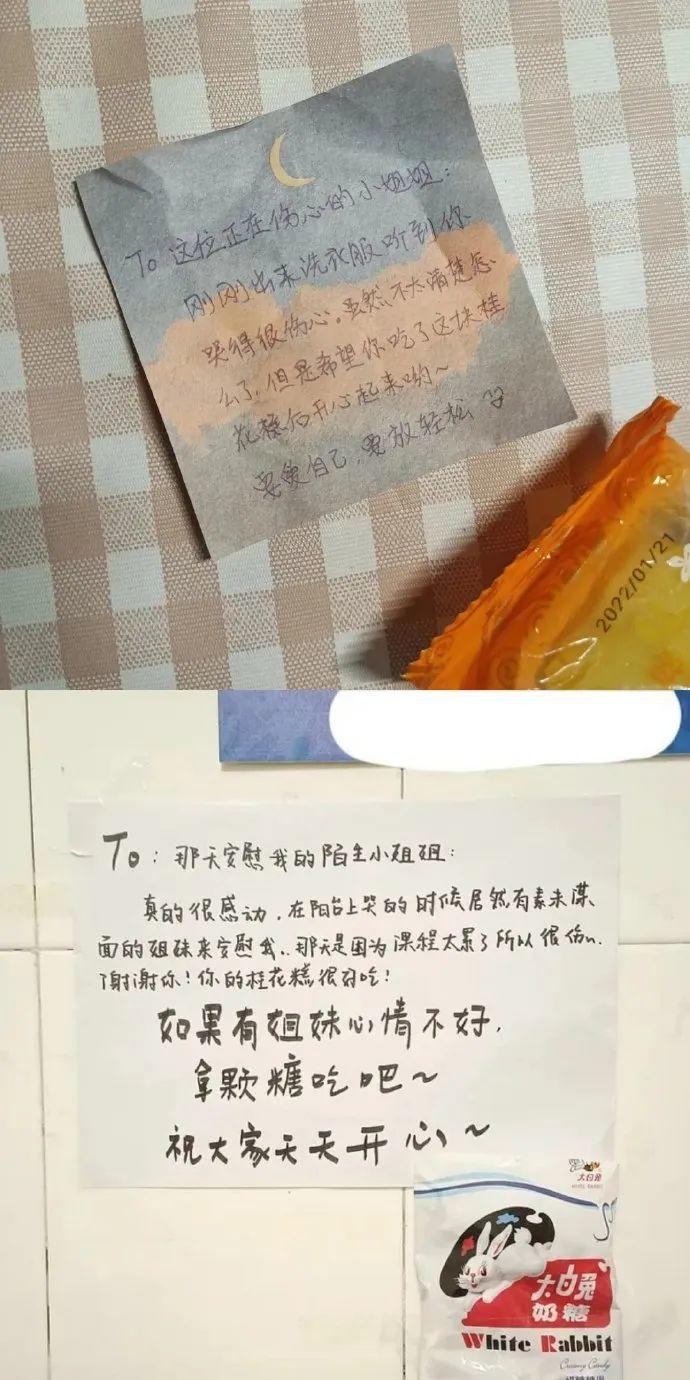 To 这位正在伤心的小姐姐：
刚刚出来洗衣服听到你
哭得很伤心。虽然不太清楚怎
么了，但是希望你吃了这块桂
花糕后开心起来哟~
要爱自己，要放轻松
2022/01/21
To：那天安慰我的陌生小姐姐：
真的很感动，在阳台上哭的时候居然有素未谋
面的姐妹来安慰我..那天是因为课程太累了所以很伤心
谢谢你！你的桂花糕很好吃！
如果有姐妹心情不好，
拿颗糖吃吧~
祝大家天天开心~
大白兔
WHITE RABBIT
大白兔
奶糖
White Rabbit
Creamy Candy